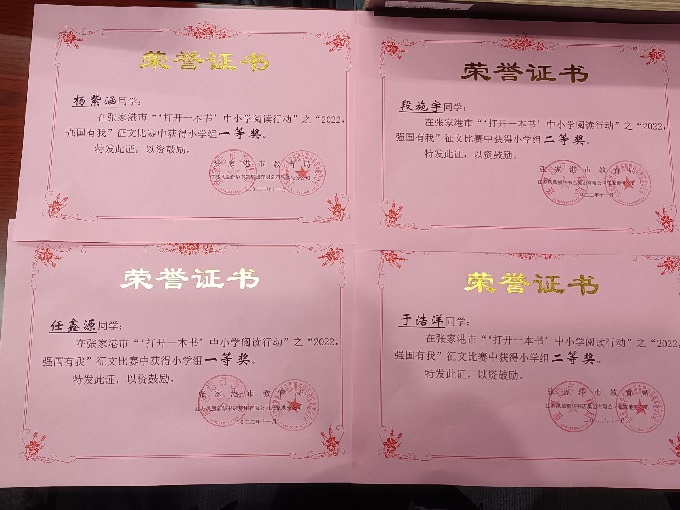 荣誉证书
杨紫涵同学:
在张家港市“‘打开一本书’中小学阅读行动”之“2022,
强国有我”征文比赛中获得小学组一等奖。
特发此证,以资鼓励。
张家港市教育局
荣誉证书
段施宇同学:
在张家港市“‘打开一本书’中小学阅读行动”之“2022,
强国有我”征文比赛中获得小学组二等奖。
特发此证,以资鼓励。
张家港市教育局
荣誉证书
任鑫源同学:
在张家港市“‘打开一本书’中小学阅读行动”之“2022,
强国有我”征文比赛中获得小学组一等奖。
特发此证,以资鼓励。
张家港市教育局
荣誉证书
于浩洋同学:
在张家港市“‘打开一本书’中小学阅读行动”之“2022,
强国有我”征文比赛中获得小学组二等奖。
特发此证,以资鼓励。
张家港市教育局